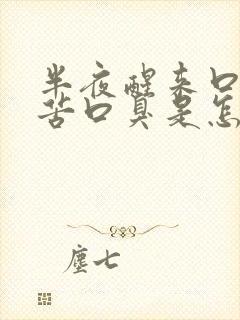 半夜醒来口
苦口臭是怎
尘七